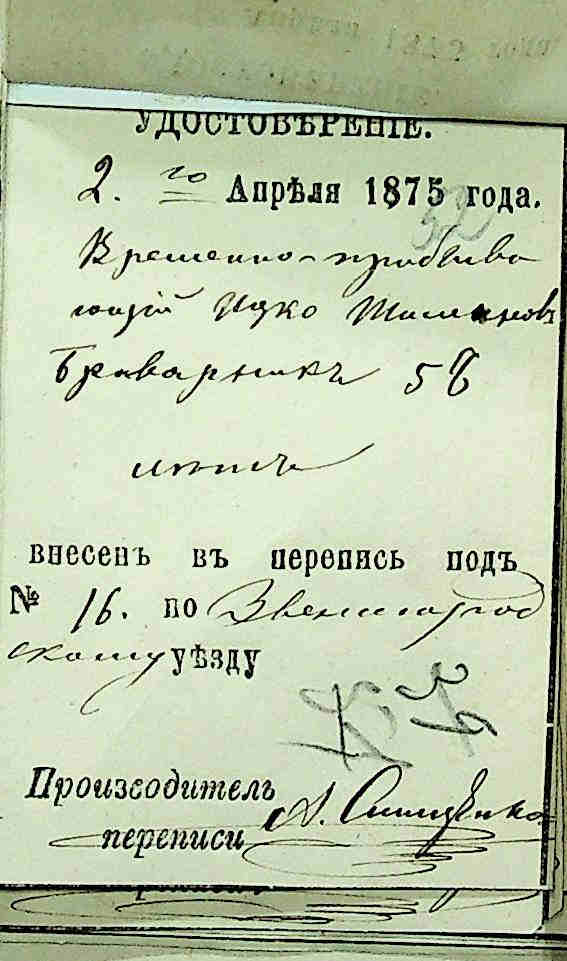 УДОСТОВѢРЕНІЕ.
2.го Апрѣля 1875 года.
Временно-пробыва
ющій Ицко
Броварникъ 58
лѣтъ
внесенъ въ перепись подъ
№ 16. по Звенигород
скому уѣзду
Производитель
переписи